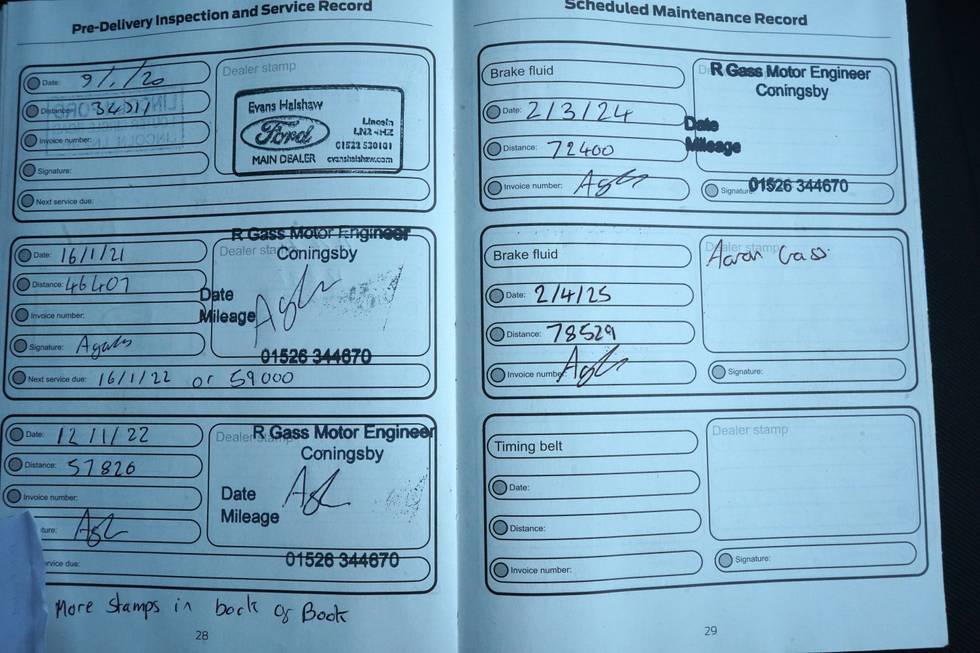 Pre-Delivery Inspection and Service Record
Date: 9/1/20
Distance: 34317
Invoice number:
Signature:
Next service due:
Dealer stamp
Evans Halshaw
Ford
Lincoln
LN2 4HZ
01522 530101
MAIN DEALER evanshalshaw.com
Date: 16/1/21
Distance: 46407
Invoice number:
Signature:
Next service due: 16/1/22 or 59000
R Gass Motor Engineer
Dealer stamp
Coningsby
Date
Mileage
01526 344670
Date: 12/1/22
Distance: 57826
Invoice number:
ture:
rvice due:
Dealer stamp
R Gass Motor Engineer
Coningsby
Date
Mileage
01526 344670
More stamps in back of Book
28
Scheduled Maintenance Record
Brake fluid
Date: 2/3/24
Distance: 72400
Invoice number:
R Gass Motor Engineer
Coningsby
Date
Mileage
Signature:
01526 344670
Brake fluid
Date: 2/4/25
Distance: 78529
Invoice number:
Dealer stamp
Aaron Gass
Signature:
Timing belt
Date:
Distance:
Invoice number:
Dealer stamp
Signature:
29